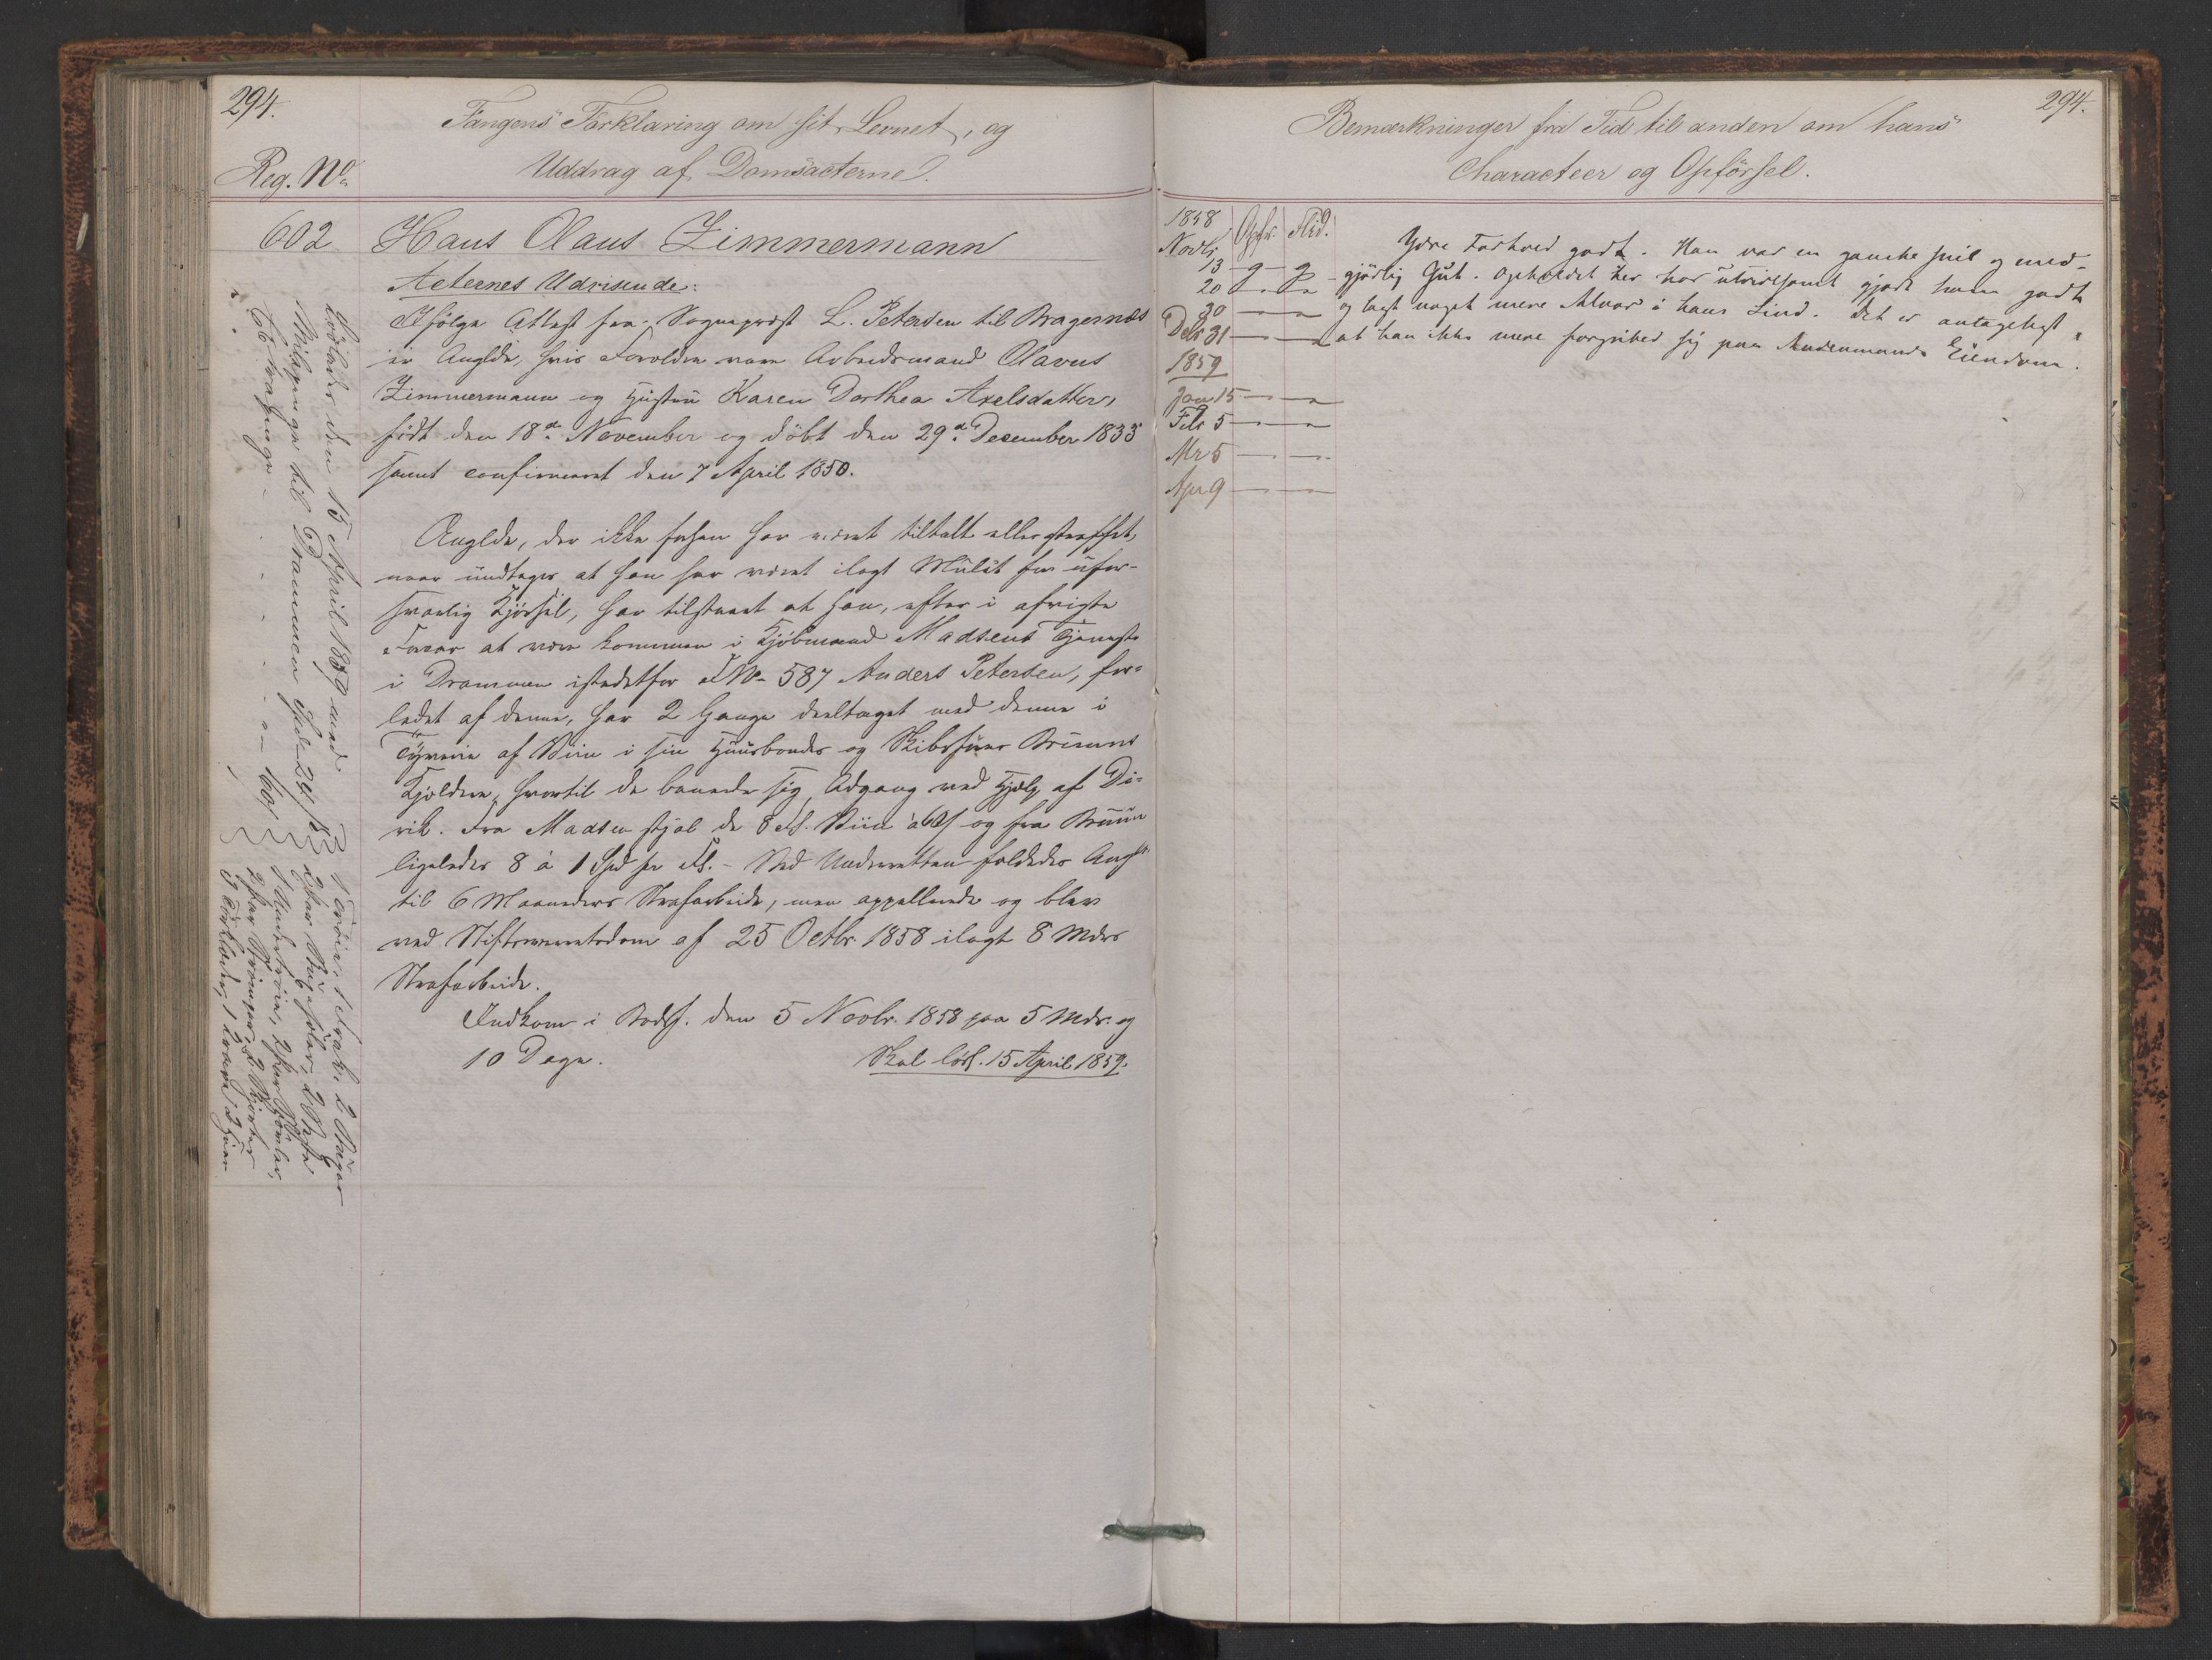 294.
Fangens Forklaring om sit Levnet, og
Uddrag af Domsacterne.
Reg. No.
602
Hans Olaus Zimmermann
Acternes Udvisende:
Ifølge Attest fra Sogneprest L. Petersen til Bragernæs
er Anglde, hvis Forældre vare Arbeidsmand Olavus
Zimmermann og Hustru Karen Dorthea Axelsdatter,
født den 18de November og döbt den 29de December 1835
samt confirmeret den 7 April 1850.
Anglde, der ikke forhen har været tiltalt eller straffet,
naar undtages at han har været ilagt Mulct for ufor-
svarlig Kjörsel, har tilstaaet at han, efter i afvigte
Foraar at være kommen i Kjöbmand Madsens Tjeneste
i Drammen istedetfor F No. 587 Anders Petersen, for-
ledet af denne, har 2 Gange deeltaget med denne i
Tyverie af Viin i sin Huusbonds og Skibsförer Bruuns
Kjeldere, hvortil de banede sig Adgang ved Hjelp af Di-
rik. Fra Madsen stjal de 8 Fl. Viin à 60 s og fra Bruun
ligeledes 8 à 1 Spd pr Fl. - Ved Underretten fældedes Angl
til 6 Maaneders Strafarbeide, men appellerede og blev
ved Stiftsoverretsdom af 25 Octbr. 1858 ilagt 8 Mdrs
Strafarbeide.
Indkom i Bodsf. den 5 Novbr. 1858 paa 5 Mdr. og
10 Dage.
Skal lösl. 15 April 1859.
Lösladen den 15 April 1859 med
Reisepenge til Drammen
1 Tröie, 1 Frak, 2 Buxer
2 Par 2 Veste
1 Undertröie, 2 Par
2 Par Strömper, 2 Skjorter
294.
Bemærkninger fra Tid til anden om hans
Characteer og Opförsel.
1858
Opfr.
Flid.
Novbr
13 g g
20 g g
30
Decbr 31
1859
Jan 15
Feb 5
Mr 5
Apr 9
Ydre Forhold godt. Han var en ganske snil og med-
gjörlig Gut. Opholdet her har utvivlsomt gjort ham godt
og lagt noget mere Alvor i hans Sind. Det er antageligt,
at han ikke mere forgriber sig paa Andenmands Eiendom.